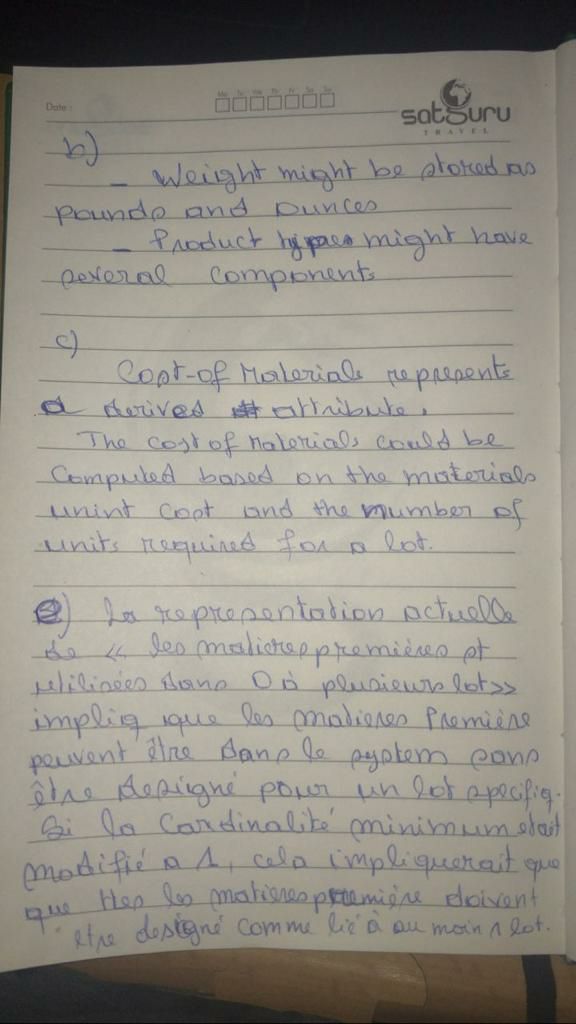 Date :
Mo Tu We Th Fr Sa Su
satGuru
TRAVEL
b)
- Weight might be stored as
pounds and ounces
- Product types might have
several components
c)
Cost-of Materials represents
a derived attribute.
The cost of Materials could be
Computed based on the materials
unint cost and the number of
units required for a lot.
e) La representation actuelle
de << les matieres premières st
utilisées dans 0 à plusieurs lot>>
impliq que les matieres Première
peuvent être dans le system sans
être designé pour un lot specifiq.
Si la Cardinalité minimum etait
modifié a 1, cela impliquerait que
que ttes les matieres première doivent
être designé comme lié à au moin 1 lot.